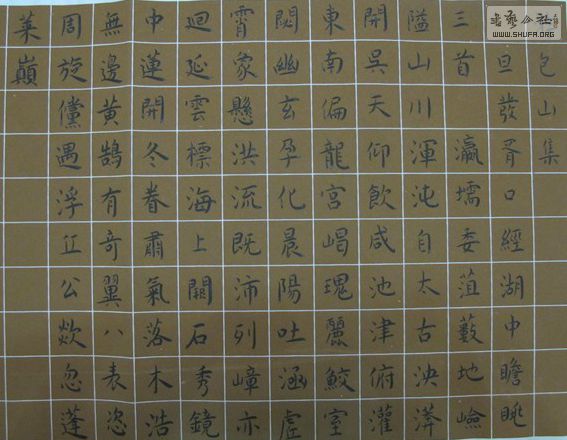 包山集
旦發胥口經湖中瞻眺
三首 瀛壖委菹藪地嶮
隘山川渾沌自太古泱漭
開吳天仰飲咸池津俯灌
東南偏龍宮嵑瑰麗鮫室
閟幽玄孕化晨陽吐涵虛
霄象懸洪流既沛列嶂亦
迴延雲標海上闕石秀鏡
中蓮開冬眷肅氣落木浩
無邊黄鵠有奇翼八表恣
周旋儻遇浮丘公欻忽蓬
莱巔
WWW.SHUFA.ORG